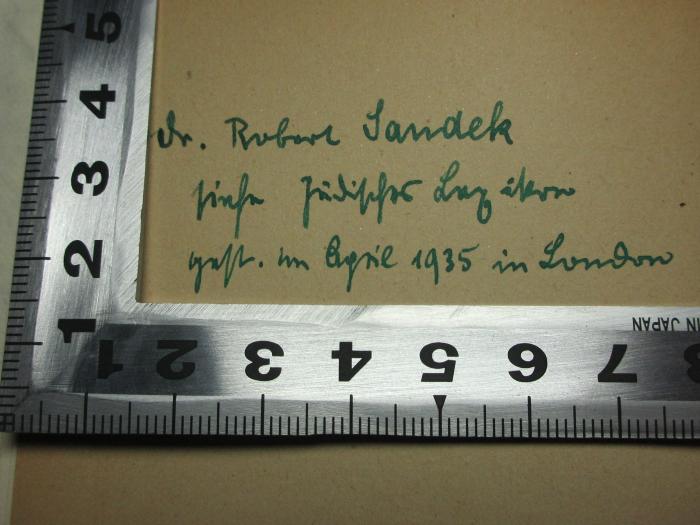 Dr. Robert Saudek
siehe Jüdisches Lexikon
gest. im April 1935 in London
5
4
3
2
1
1 2 3 4 5 6 7 8
IN JAPAN